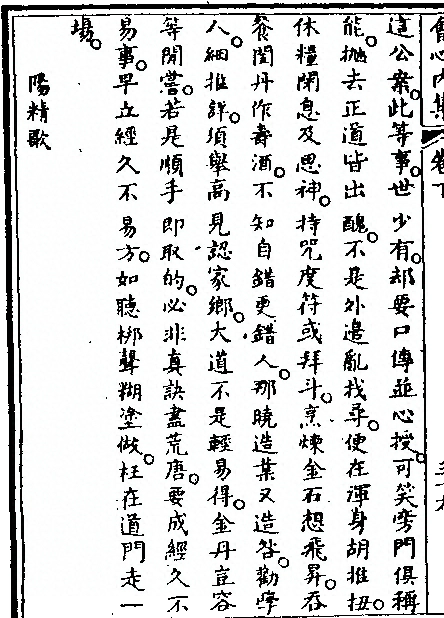 會心內集 卷下
這公案。此等事。世少有。却要口傳並心授。可笑旁門俱稱
能。抛去正道皆出醜。不是外邊亂找尋。便在渾身胡推扭。
休糧閉息及思神。持咒度符或拜斗。烹煉金石想飛昇。吞
餐閨丹作壽酒。不知自錯更錯人。那曉造業又造咎。勸學
人。細推詳。須舉高見認家鄉。大道不是輕易得。金丹豈容
等閒嘗。若是順手即取的。必非真訣盡荒唐。要成經久不
易事。早立經久不易方。如聽梆聲糊塗做。枉在道門走一
場。
陽精歌